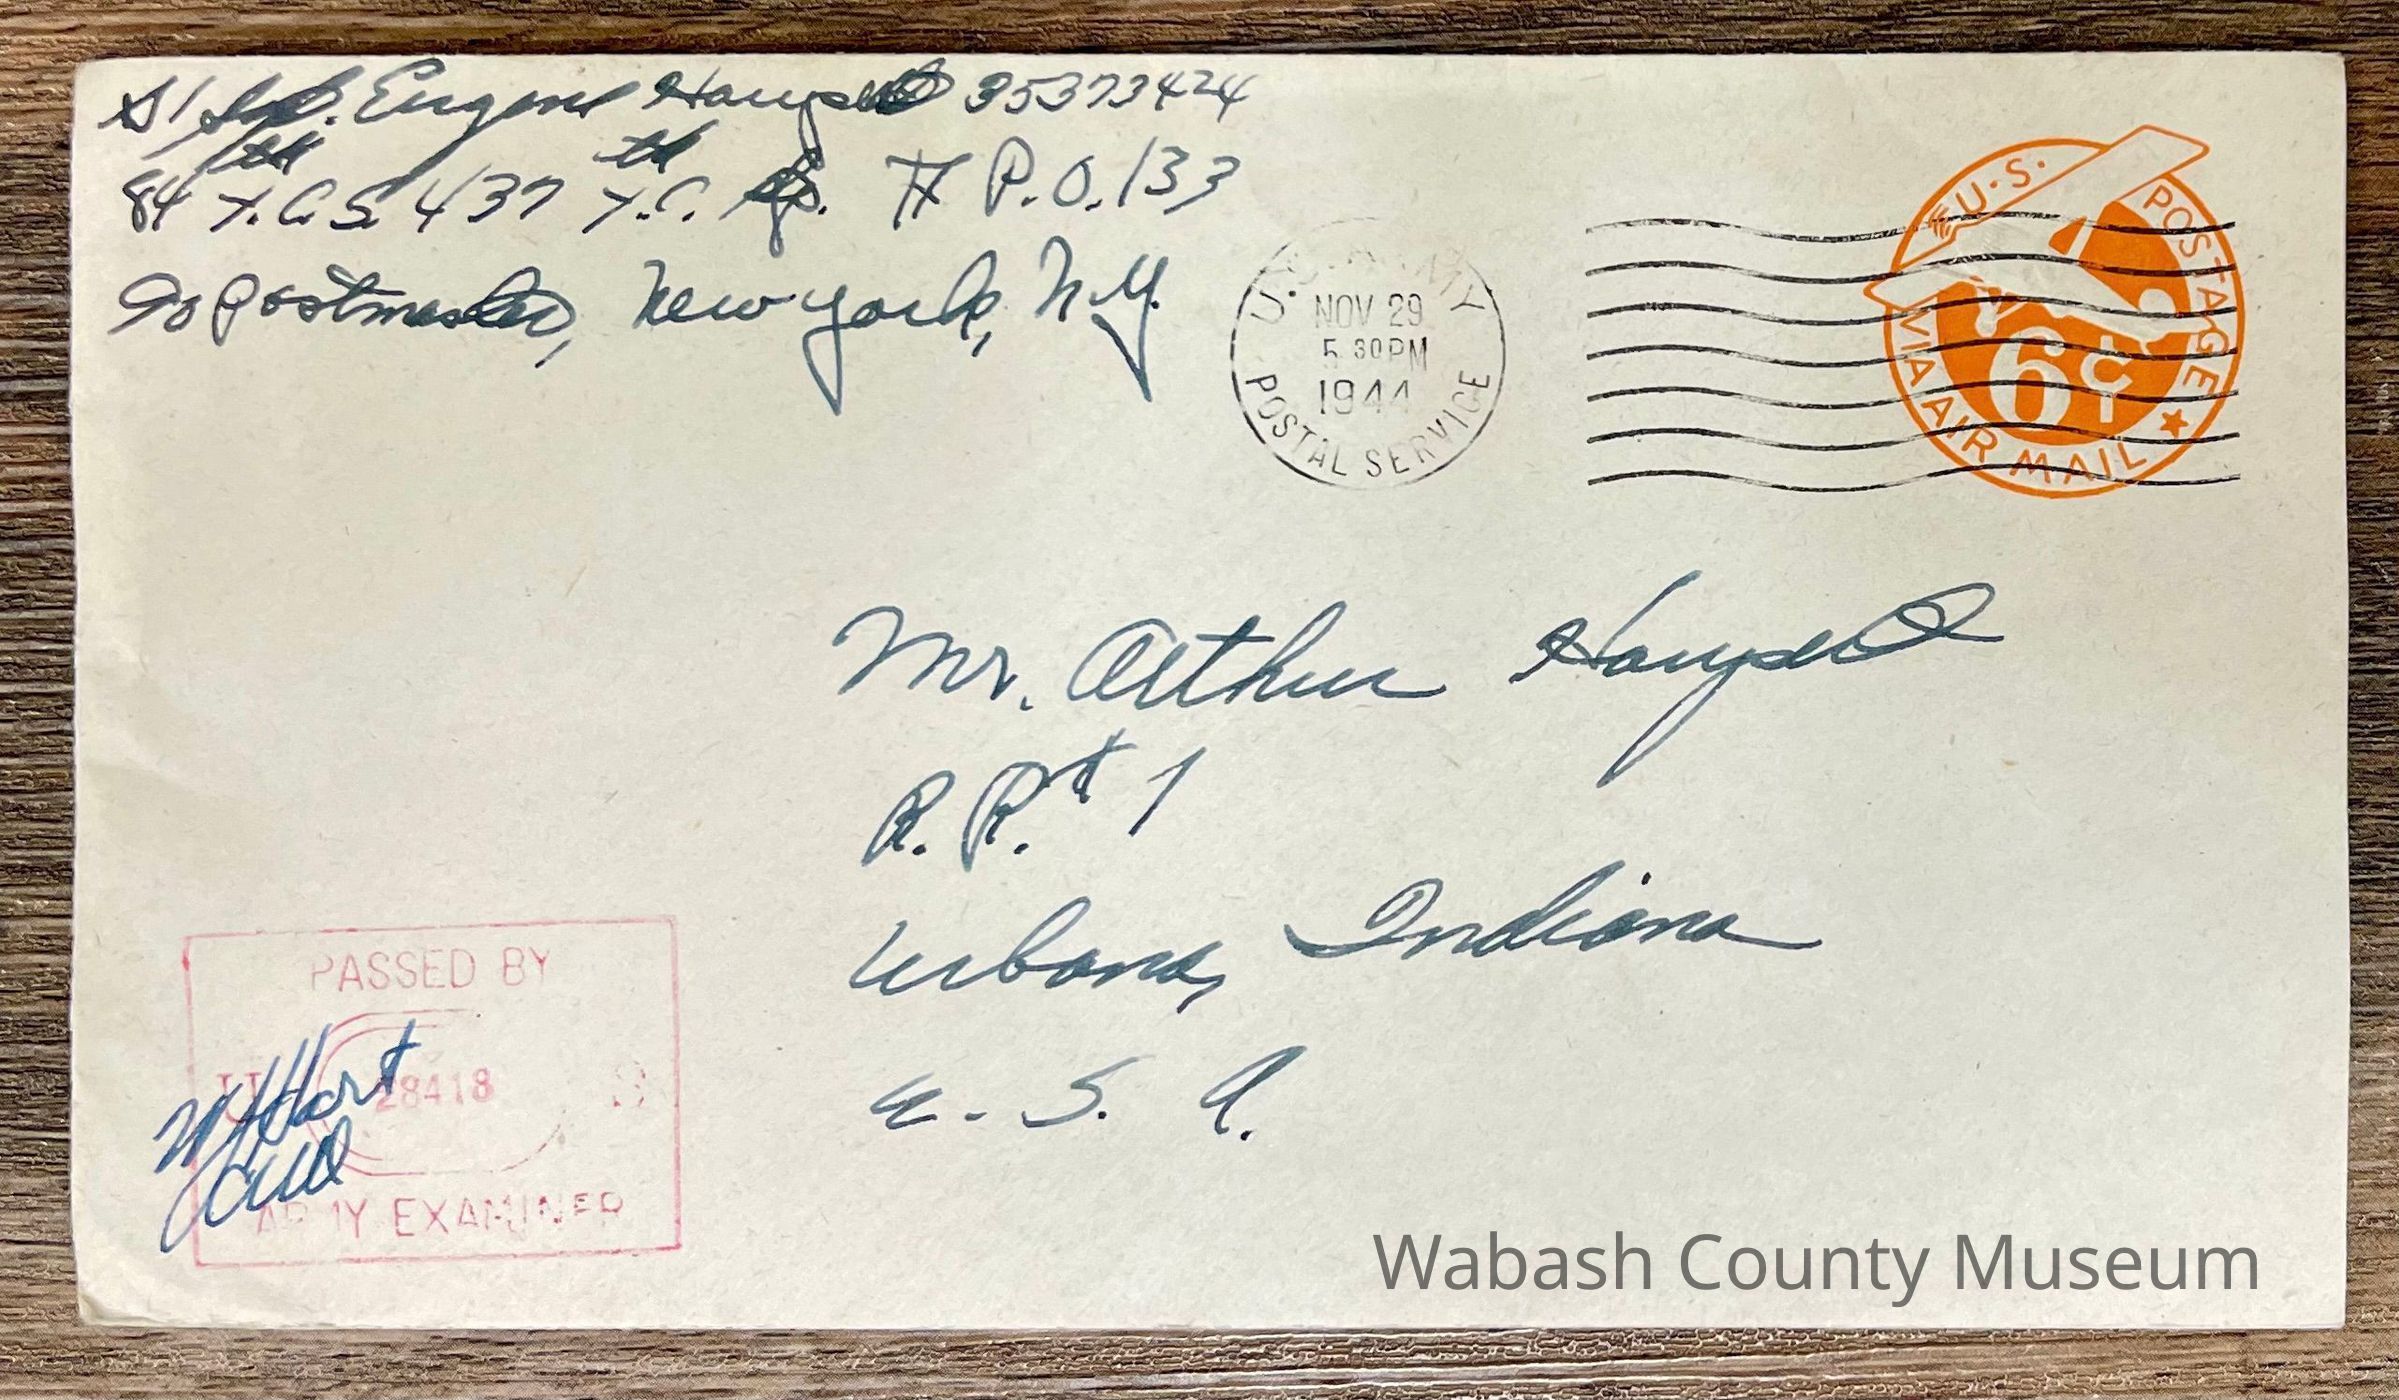 S/Sgt. Eugene Haupert 35373424
84th T.C.S. 437th T.C. Gp. A P.O. 133
℅ Postmaster, New York, N.Y.
U.S. ARMY
NOV 29
5 30PM
1944
POSTAL SERVICE
U.S. POSTAGE
6¢
VIA AIR MAIL
Mr. Arthur Haupert
R. R. # 1
Urbana, Indiana
U. S. A.
PASSED BY
U 28418 S
Hart
ARMY EXAMINER
Wabash County Museum